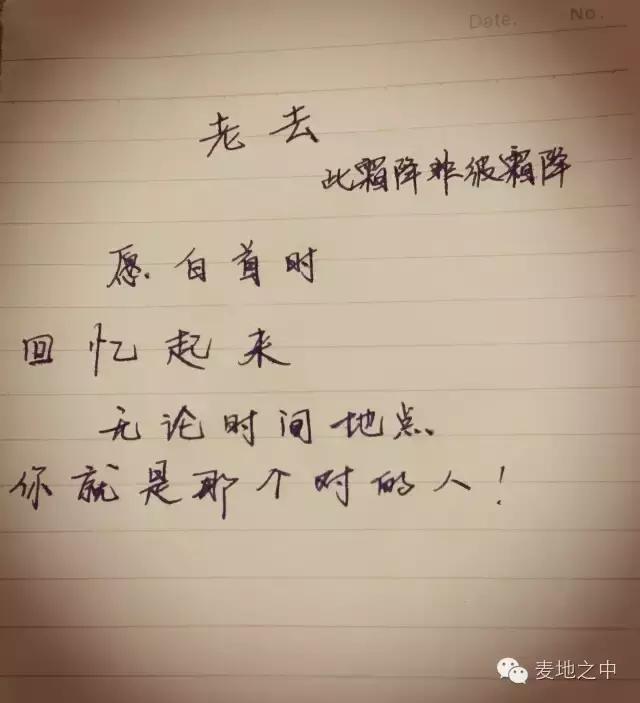 Date. No.
老去
此霜降非彼霜降
愿白首时
回忆起来
无论时间地点
你就是那个对的人！
麦地之中